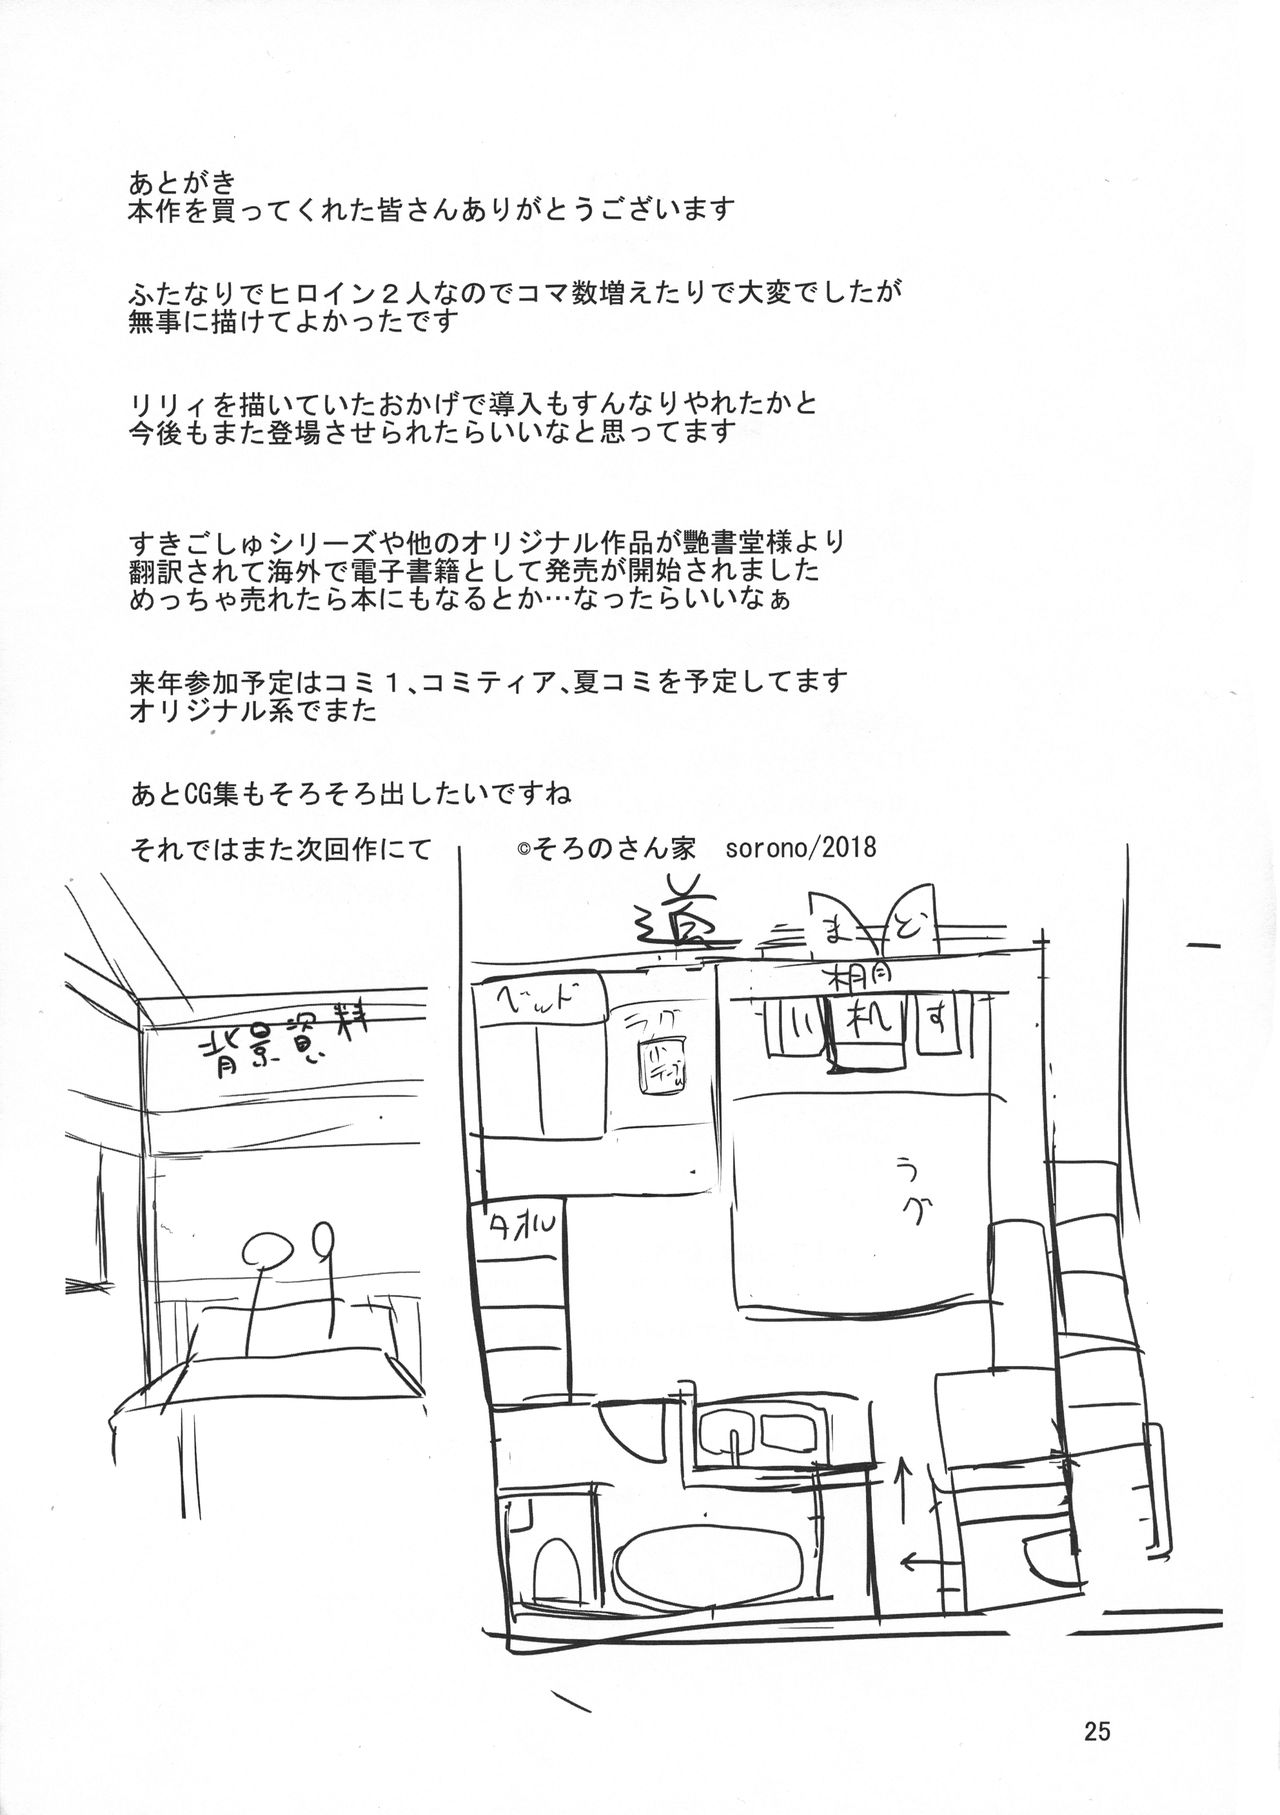 あとがき
本作を買ってくれた皆さんありがとうございます
ふたなりでヒロイン２人なのでコマ数増えたりで大変でしたが
無事に描けてよかったです
リリィを描いていたおかげで導入もすんなりやれたかと
今後もまた登場させられたらいいなと思ってます
すきごしゅシリーズや他のオリジナル作品が艶書堂様より
翻訳されて海外で電子書籍として発売が開始されました
めっちゃ売れたら本にもなるとか…なったらいいなぁ
来年参加予定はコミ１、コミティア、夏コミを予定してます
オリジナル系でまた
あとCG集もそろそろ出したいですね
それではまた次回作にて ©そろのさん家 sorono/2018
道
まど
棚
ベッド
ラグ
小テーブル
机
す
背景資料
ラグ
タオル
25